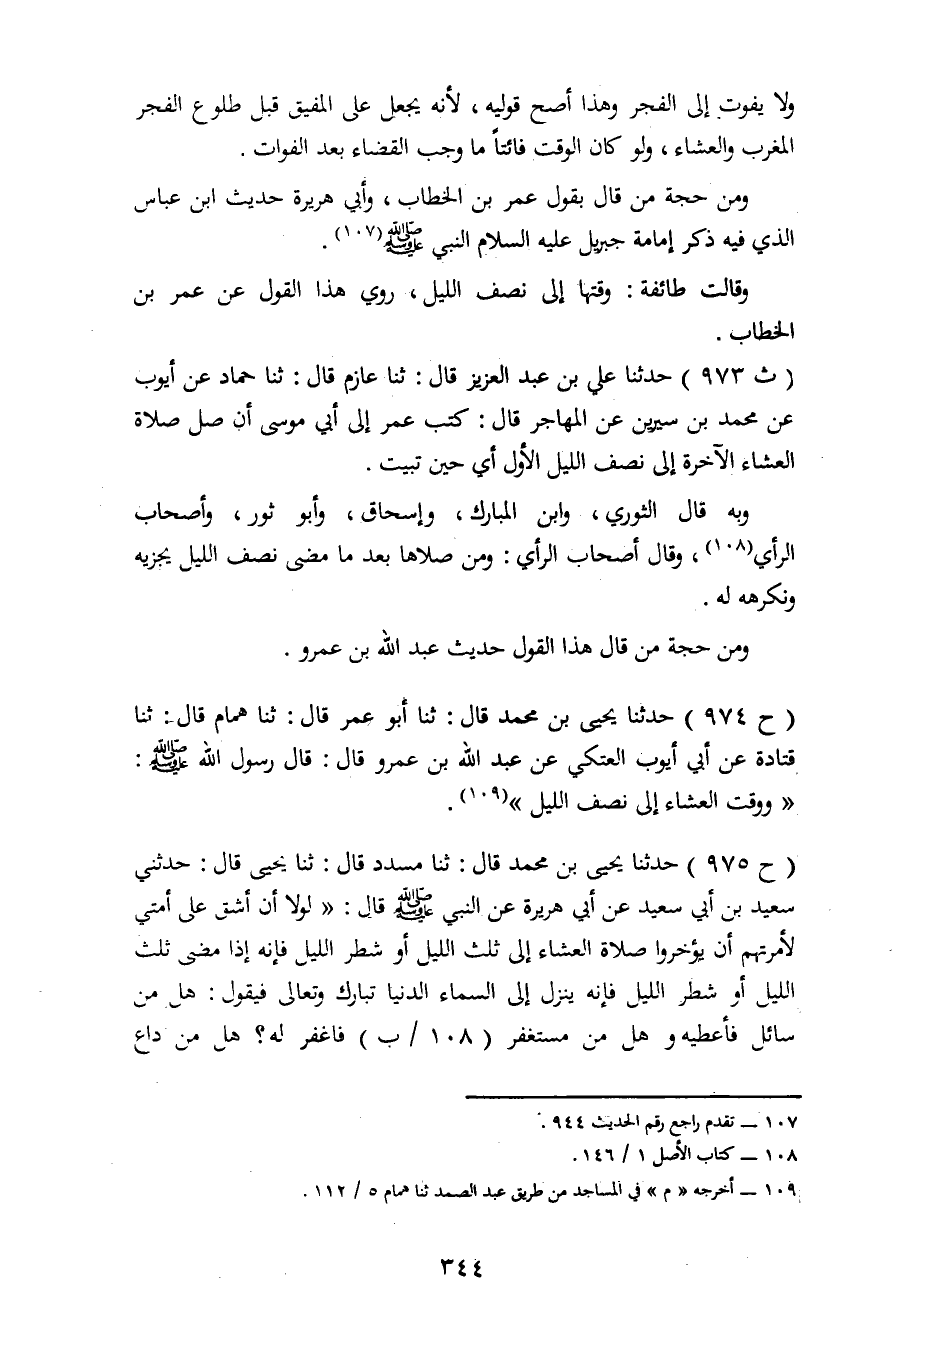 ولا يفوت إلى الفجر وهذا أصح قوليه ، لأنه يجعل على المفيق قبل طلوع الفجر
المغرب والعشاء ، ولو كان الوقت فائتاً ما وجب القضاء بعد الفوات .
ومن حجة من قال بقول عمر بن الخطاب ، وأبي هريرة حديث ابن عباس
الذي فيه ذكر إمامة جبريل عليه السلام النبي ﷺ(١٠٧) .
وقالت طائفة : وقتها إلى نصف الليل ، روي هذا القول عن عمر بن
الخطاب .
( ث ٩٧٣ ) حدثنا علي بن عبد العزيز قال : ثنا عازم قال : ثنا حماد عن أيوب
عن محمد بن سيرين عن المهاجر قال : كتب عمر إلى أبي موسى أن صل صلاة
العشاء الآخرة إلى نصف الليل الأول أي حين تبيت .
وبه قال الثوري ، وابن المبارك ، وإسحاق ، وأبو ثور ، وأصحاب
الرأي(١٠٨) ، وقال أصحاب الرأي : ومن صلاها بعد ما مضى نصف الليل يجزيه
ونكرهه له .
ومن حجة من قال هذا القول حديث عبد الله بن عمرو .
( ح ٩٧٤ ) حدثنا يحيى بن محمد قال : ثنا أبو عمر قال : ثنا همام قال : ثنا
قتادة عن أبي أيوب العتكي عن عبد الله بن عمرو قال : قال رسول الله ﷺ :
« ووقت العشاء إلى نصف الليل »(١٠٩) .
( ح ٩٧٥ ) حدثنا يحيى بن محمد قال : ثنا مسدد قال : ثنا يحيى قال : حدثني
سعيد بن أبي سعيد عن أبي هريرة عن النبي ﷺ قال : « لولا أن أشق على أمتي
لأمرتهم أن يؤخروا صلاة العشاء إلى ثلث الليل أو شطر الليل فإنه إذا مضى ثلث
الليل أو شطر الليل فإنه ينزل إلى السماء الدنيا تبارك وتعالى فيقول : هل من
سائل فأعطيه و هل من مستغفر ( ١٠٨ / ب ) فاغفر له ؟ هل من داع
١٠٧ ــ تقدم راجع رقم الحديث ٩٤٤ .
١٠٨ ــ كتاب الأصل ١ / ١٤٦ .
١٠٩ ــ أخرجه « م » في المساجد من طريق عبد الصمد ثنا همام ٥ / ١١٢ .
٣٤٤